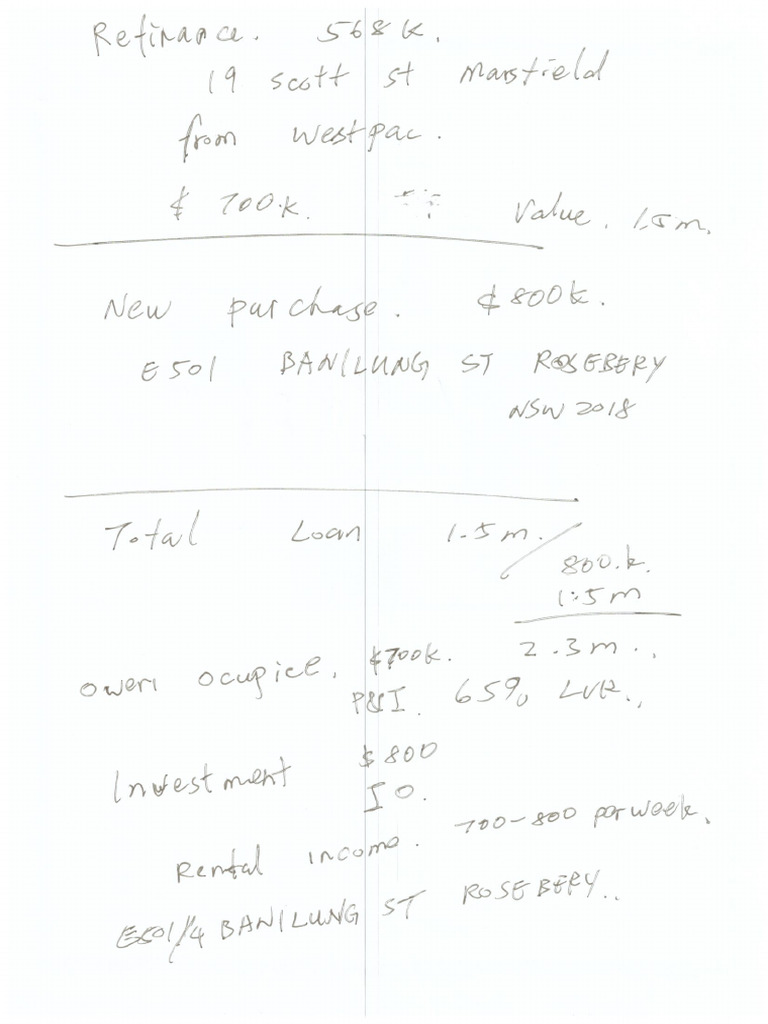 Refinance. 568k.
19 scott st Marsfield
from westpac.
$ 700.k. Value. 1.5m.
New purchase. $800k.
E501 BANILUNG ST ROSEBERY
NSW 2018
Total Loan 1.5m. /
800.k.
1.5m
2.3m..
owen ocupice. $700k.
P&I. 65% LVR..
Investment $800
IO.
Rental income. 700-800 per week.
E501/4 BANILUNG ST ROSEBERY..